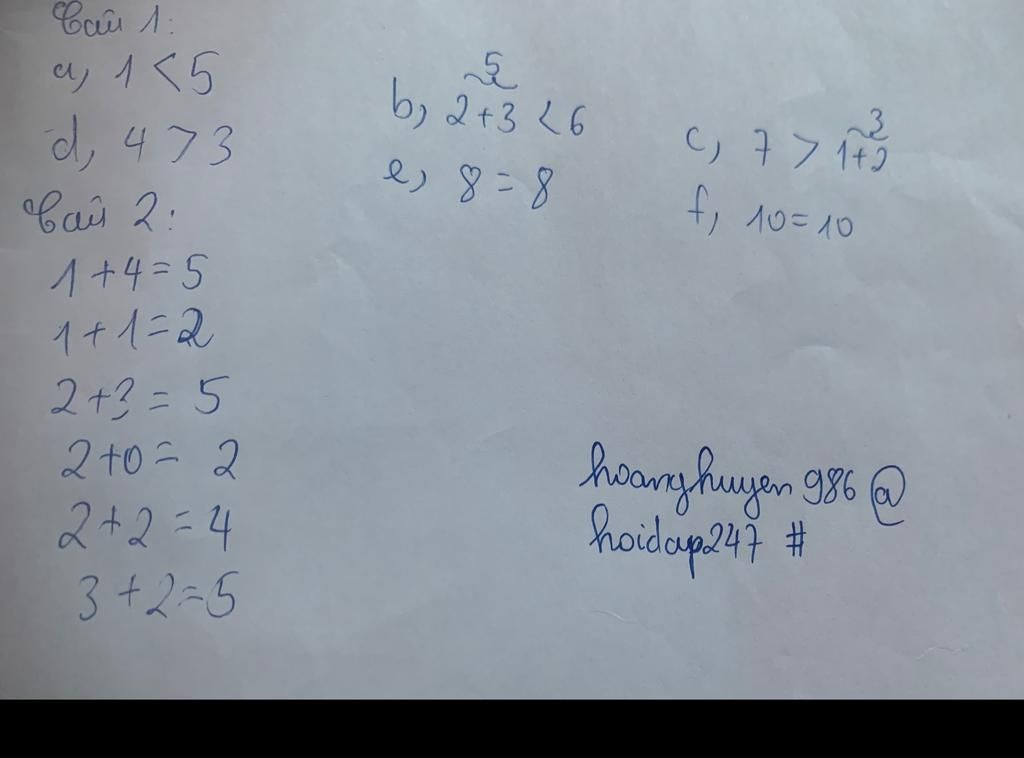 Bài 1:
a, 1 < 5
5
b, 2+3 < 6
3
c, 7 > 1+2
d, 4 > 3
e, 8 = 8
f, 10 = 10
Bài 2:
1 + 4 = 5
1 + 1 = 2
2 + 3 = 5
2 + 0 = 2
2 + 2 = 4
3 + 2 = 5
hoanghuyen986 @
hoidap247 #